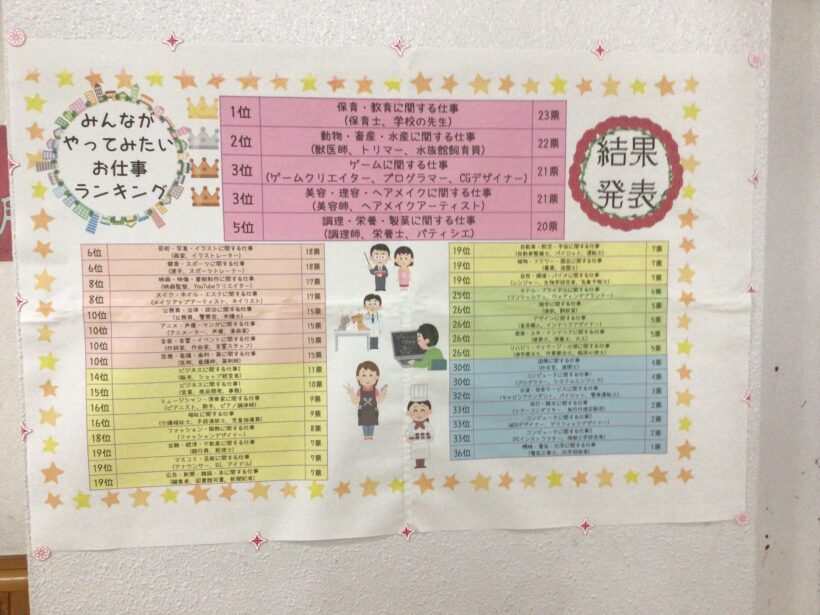 みんなが
やってみたい
お仕事
ランキング
結果
発表
1位 保育・教育に関する仕事 23票
(保育士、学校の先生)
2位 動物・畜産・水産に関する仕事 22票
(獣医師、トリマー、水族館飼育員)
3位 ゲームに関する仕事 21票
(ゲームクリエイター、プログラマー、CGデザイナー)
3位 美容・理容・ヘアメイクに関する仕事 21票
(美容師、ヘアメイクアーティスト)
5位 調理・栄養・製菓に関する仕事 20票
(調理師、栄養士、パティシエ)
6位 芸術・写真・イラストに関する仕事 18票
(画家、イラストレーター)
6位 健康・スポーツに関する仕事 18票
(選手、スポーツトレーナー)
8位 映画・映像・音響制作に関する仕事 17票
(映画監督、YouTubeクリエイター)
8位 メイク・ネイル・エステに関する仕事 17票
(メイクアップアーティスト、ネイリスト)
10位 公務員・法律・政治に関する仕事 15票
(公務員、警察官、弁護士)
10位 アニメ・声優・マンガに関する仕事 15票
(アニメーター、声優、漫画家)
10位 音楽・音響・イベントに関する仕事 15票
(作詞家、作曲家、音響スタッフ)
10位 医療・看護・歯科・薬に関する仕事 15票
(医師、看護師、薬剤師)
13位 ビジネスに関する仕事2 11票
14位 (販売、ショップ経営者)
ビジネスに関する仕事1 10票
15位 (営業、商品開発、事務)
ミュージシャン・演奏家に関する仕事 9票
16位 (ピアニスト、歌手、ピアノ調律師)
福祉に関する仕事 9票
16位 (介護福祉士、手話通訳士、児童指導員)
ファッション・服飾に関する仕事 8票
18位 (ファッションデザイナー)
金融・経済・不動産に関する仕事 7票
19位 (銀行員、税理士)
マスコミ・芸能に関する仕事 7票
19位 (アナウンサー、DJ、アイドル)
広告・新聞・雑誌・本に関する仕事 7票
19位 (編集者、図書館司書、新聞記者)
19位 自動車・航空・宇宙に関する仕事 7票
(自動車整備士、パイロット、運転士)
19位 植物・フラワー・園芸に関する仕事 7票
(農業、造園士)
19位 自然・環境・バイオに関する仕事 7票
(レンジャー、生物学研究者、気象予報士)
25位 ホテル・ブライダルに関する仕事 6票
(コンシェルジュ、ウェディングプランナー)
26位 語学に関する仕事 5票
(通訳、翻訳家)
26位 デザインに関する仕事 5票
(家具職人、インテリアデザイナー)
26位 建築・土木・インテリアに関する仕事 5票
(建築士、測量士、大工)
26位 リハビリ・マッサージ・心理に関する仕事 5票
(理学療法士、作業療法士、臨床心理士)
30位 国際に関する仕事 4票
(外交官、通関士)
30位 コンピュータに関する仕事 4票
(プログラマー、システムエンジニア)
32位 交通・旅客サービスに関する仕事 3票
(キャビンアテンダント、パイロット、電車運転士)
33位 旅行・観光に関する仕事 2票
33位 コンピュータに関する仕事 2票
(WEBデザイナー、グラフィックデザイナー)
33位 コンピュータに関する仕事 2票
36位 機械・電気・化学に関する仕事 1票
(電気工事士、化学技術者)